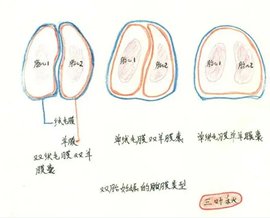 胎儿1 胎儿2
胎儿1 胎儿2
胎儿1 胎儿2
绒毛膜
羊膜
双绒毛膜双羊
膜囊
单绒毛膜双羊膜囊
单绒毛膜单羊膜囊
双胎妊娠的胎膜类型
三叶秋